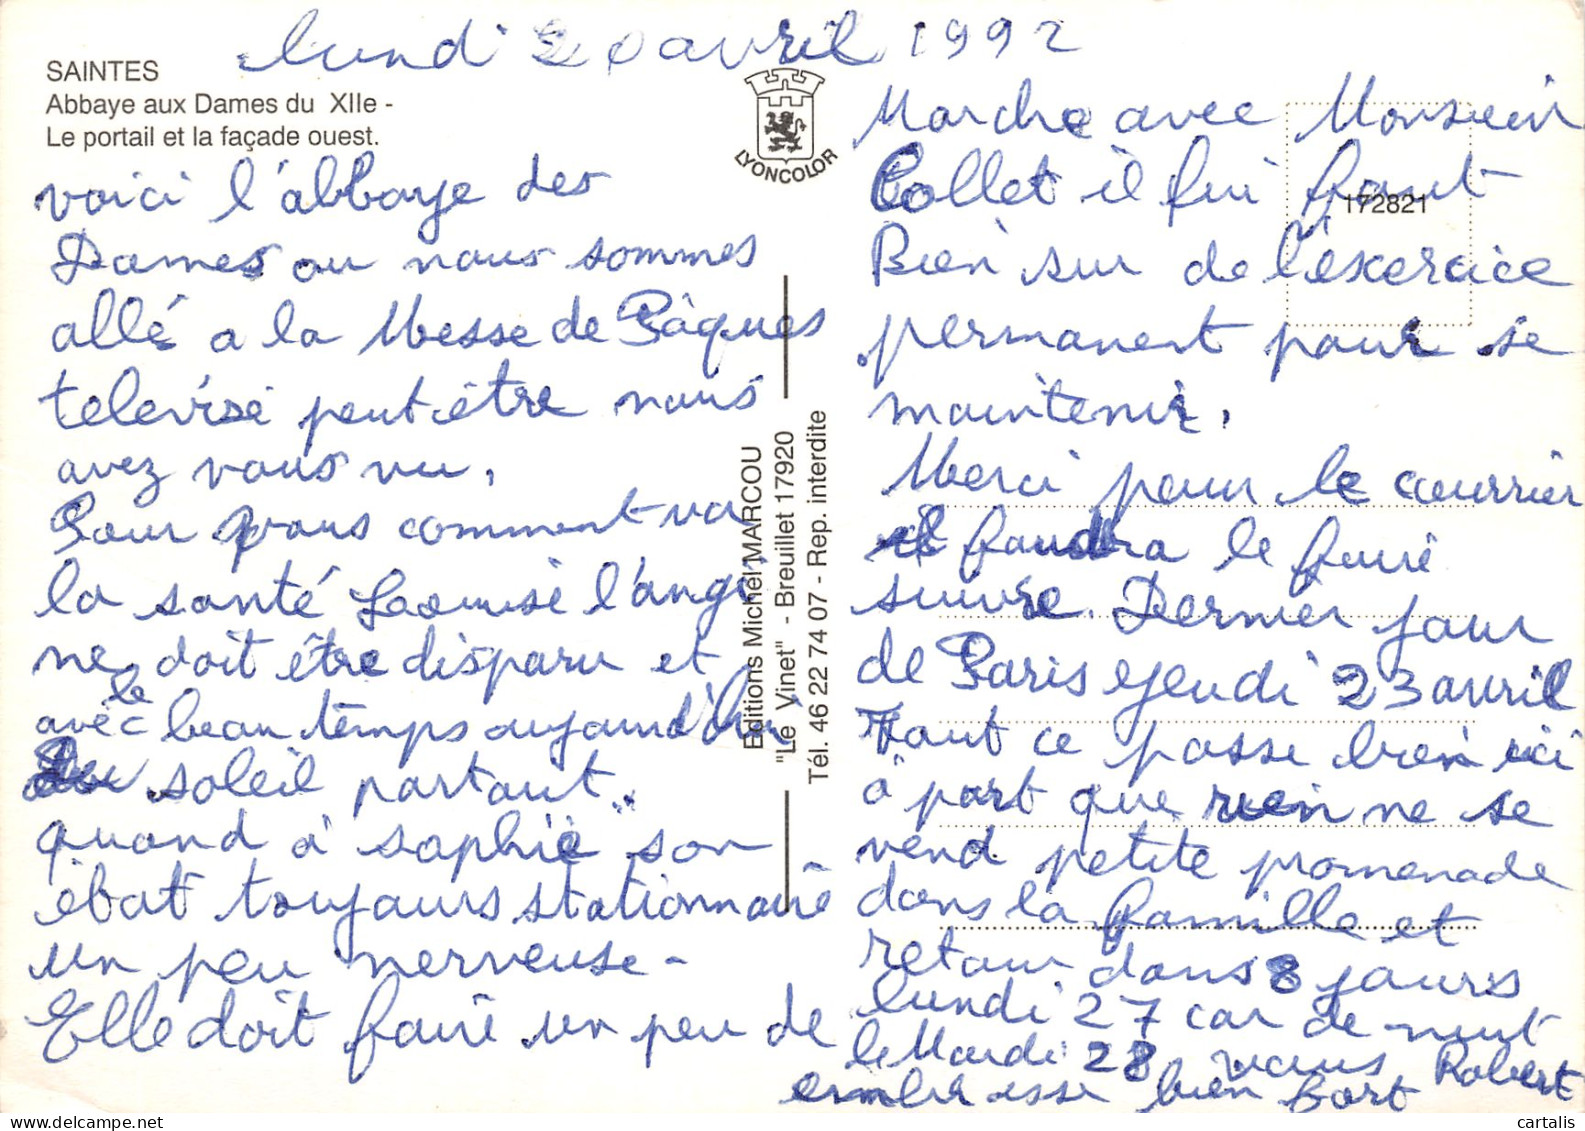 lundi 20 avril 1992
SAINTES
Abbaye aux Dames du XIIe -
Le portail et la façade ouest.
LYONCOLOR
172821
voici l'abbaye des
Dames ou nous sommes
allé a la Messe de Pâques
televisé peut être nous
avez vous vu,
Pour vous comment va
la santé Louise l'angi
ne doit être disparu et
avec le beau temps aujourd'hui
du soleil partout..
quand à sophie son
êbat toujours stationnaire
un peu nerveuse-
Elle doit faire un peu de
Editions Michel MARCOU
"Le Vinet" - Breuillet 17920
Tél. 46 22 74 07 - Rep. interdite
Marche avec Monsieur
Collet il lui faut
Bien sur de l'exercice
permanent pour se
maintenir.
Merci pour le courrier
il faudra le faire
suivre. Dernier jour
de Paris jeudi 23 avril
Tout ce passe bien ici
à part que rien ne se
vend petite promenade
dans la famille et
retour dans 8 jours
lundi 27 car de nuit
le Mardi 28 vous Robert
embrasse bien fort
cartalis